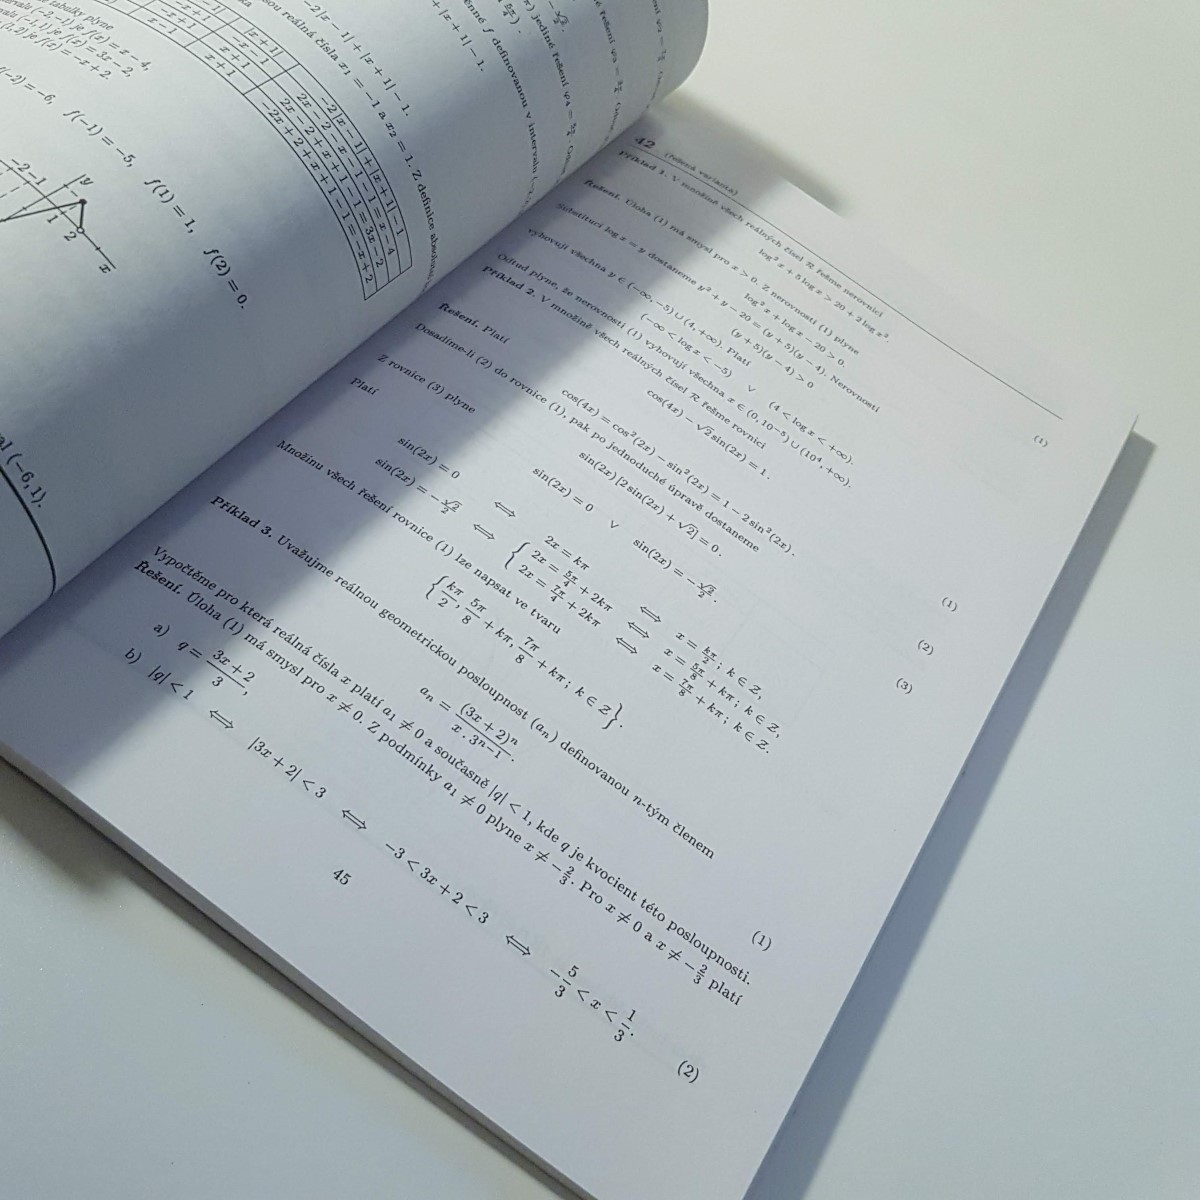 z tabulky plyne
(−2,−1) je f(x) = x − 4,
(−1,1) je f(x) = 3x − 2,
(1,2) je f(x) = −x + 2.
−2|x − 1| + |x + 1| − 1
2x − 2 − x − 1 − 1 = x − 4
2x − 2 + x + 1 − 1 = 3x − 2
−2x + 2 + x + 1 − 1 = −x + 2
|x + 1|
−x − 1
x + 1
x + 1
x − 1
−2|x − 1| + |x + 1| − 1.
jsou reálná čísla x₁ = −1 a x₂ = 1. Z definice
f definovanou v intervalu
+ |x + 1| − 1.
(−2) = −6, f(−1) = −5, f(1) = 1, f(2) = 0.
−2 −1 y 1 2 x
(−6,1).
42 (řešená varianta)
Příklad 1. V množině všech reálných čísel R řešme nerovnici
log² x + 5 log x > 20 + 2 log x². (1)
Řešení. Úloha (1) má smysl pro x > 0. Z nerovnosti (1) plyne
log² x + log x − 20 > 0.
Substitucí log x = y dostaneme y² + y − 20 = (y + 5)(y − 4). Nerovnosti
(y + 5)(y − 4) > 0
vyhovují všechna y ∈ (−∞,−5) ∪ (4,+∞). Platí
(−∞ < log x < −5) ∨ (4 < log x < +∞).
Odtud plyne, že nerovnosti (1) vyhovují všechna x ∈ (0, 10⁻⁵) ∪ (10⁴, +∞).
Příklad 2. V množině všech reálných čísel R řešme rovnici
cos(4x) − √2 sin(2x) = 1. (1)
Řešení. Platí
cos(4x) = cos²(2x) − sin²(2x) = 1 − 2 sin²(2x). (2)
Dosadíme-li (2) do rovnice (1), pak po jednoduché úpravě dostaneme
sin(2x) [2 sin(2x) + √2] = 0. (3)
Z rovnice (3) plyne
sin(2x) = 0 ∨ sin(2x) = −√2/2.
Platí
sin(2x) = 0 ⟺ 2x = kπ ⟺ x = kπ/2; k ∈ Z,
sin(2x) = −√2/2 ⟺ { 2x = 5π/4 + 2kπ ⟺ x = 5π/8 + kπ; k ∈ Z,
2x = 7π/4 + 2kπ ⟺ x = 7π/8 + kπ; k ∈ Z.
Množinu všech řešení rovnice (1) lze napsat ve tvaru
{kπ/2, 5π/8 + kπ, 7π/8 + kπ; k ∈ Z}.
Příklad 3. Uvažujme reálnou geometrickou posloupnost (aₙ) definovanou n-tým členem
aₙ = (3x + 2)ⁿ / (x . 3ⁿ⁻¹). (1)
Vypočtěme pro která reálná čísla x platí a₁ ≠ 0 a současně |q| < 1, kde q je kvocient této posloupnosti.
Řešení. Úloha (1) má smysl pro x ≠ 0. Z podmínky a₁ ≠ 0 plyne x ≠ −2/3. Pro x ≠ 0 a x ≠ −2/3 platí
a) q = (3x + 2)/3,
b) |q| < 1 ⟺ |3x + 2| < 3 ⟺ −3 < 3x + 2 < 3 ⟺ −5/3 < x < 1/3. (2)
45